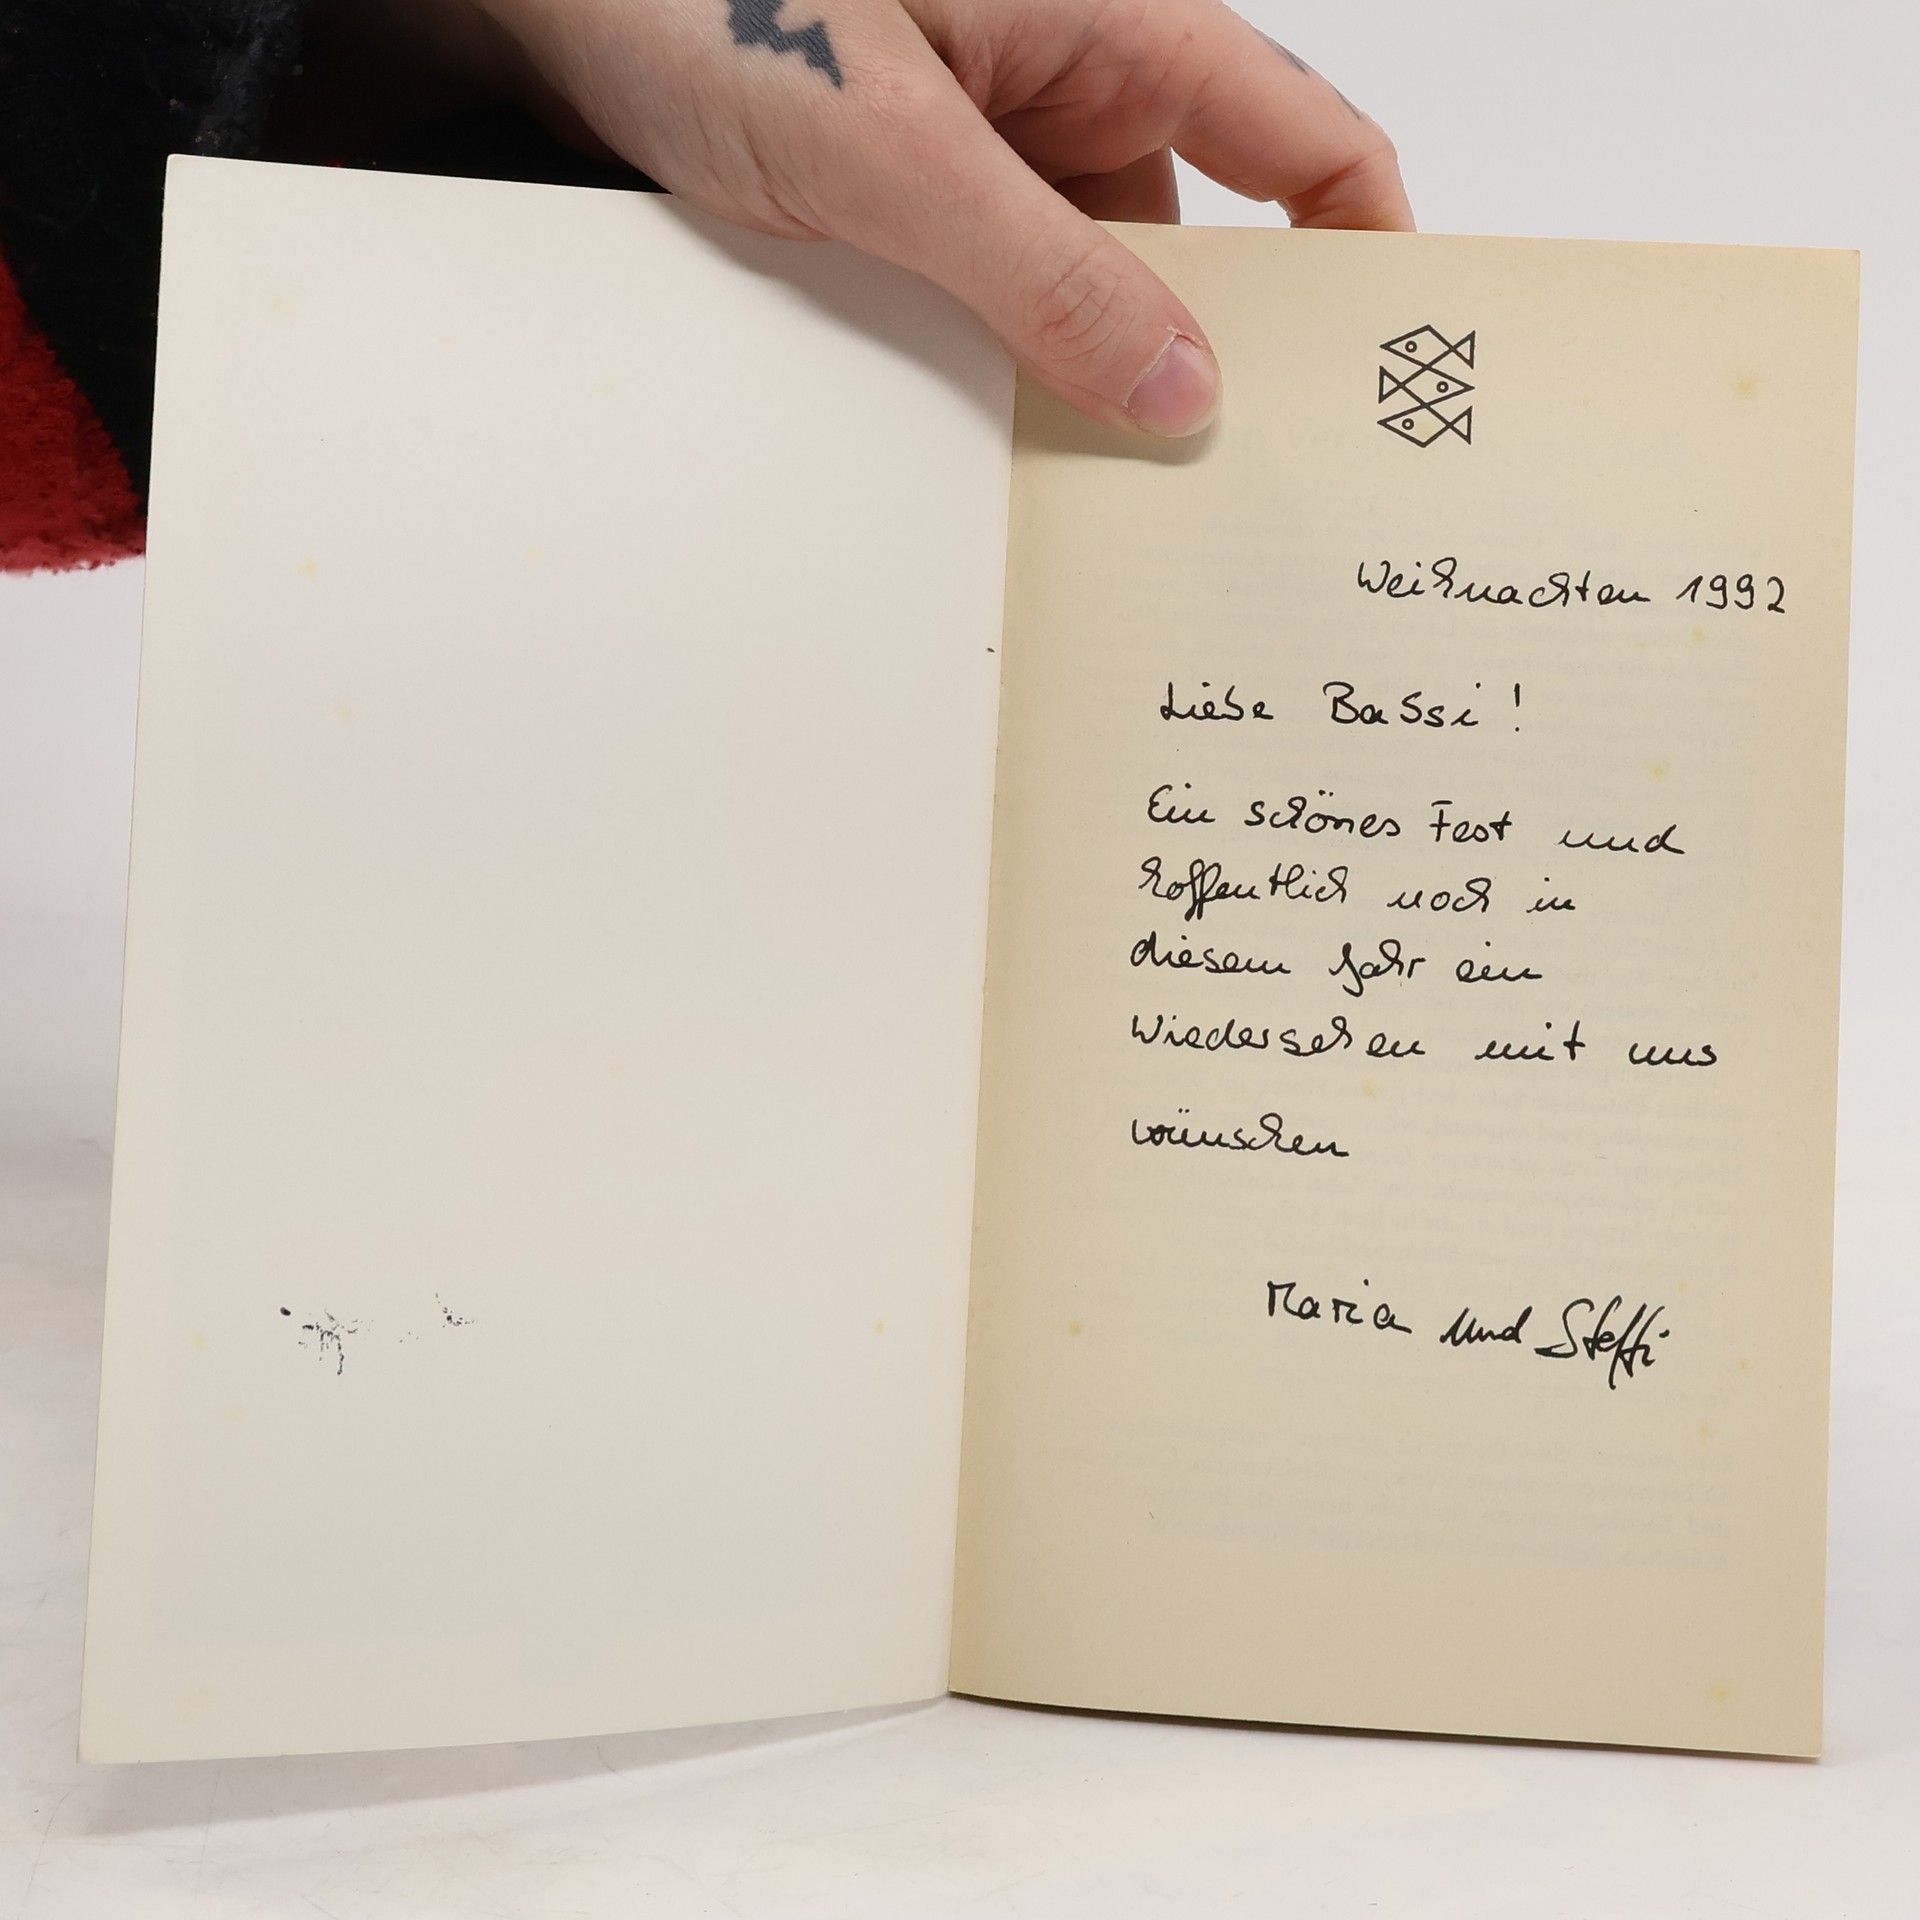 Weihnachten 1992
Liebe Bassi !
Ein schönes Fest und
hoffentlich noch in
diesem Jahr ein
Wiedersehen mit uns
wünschen
Maria und Steffi